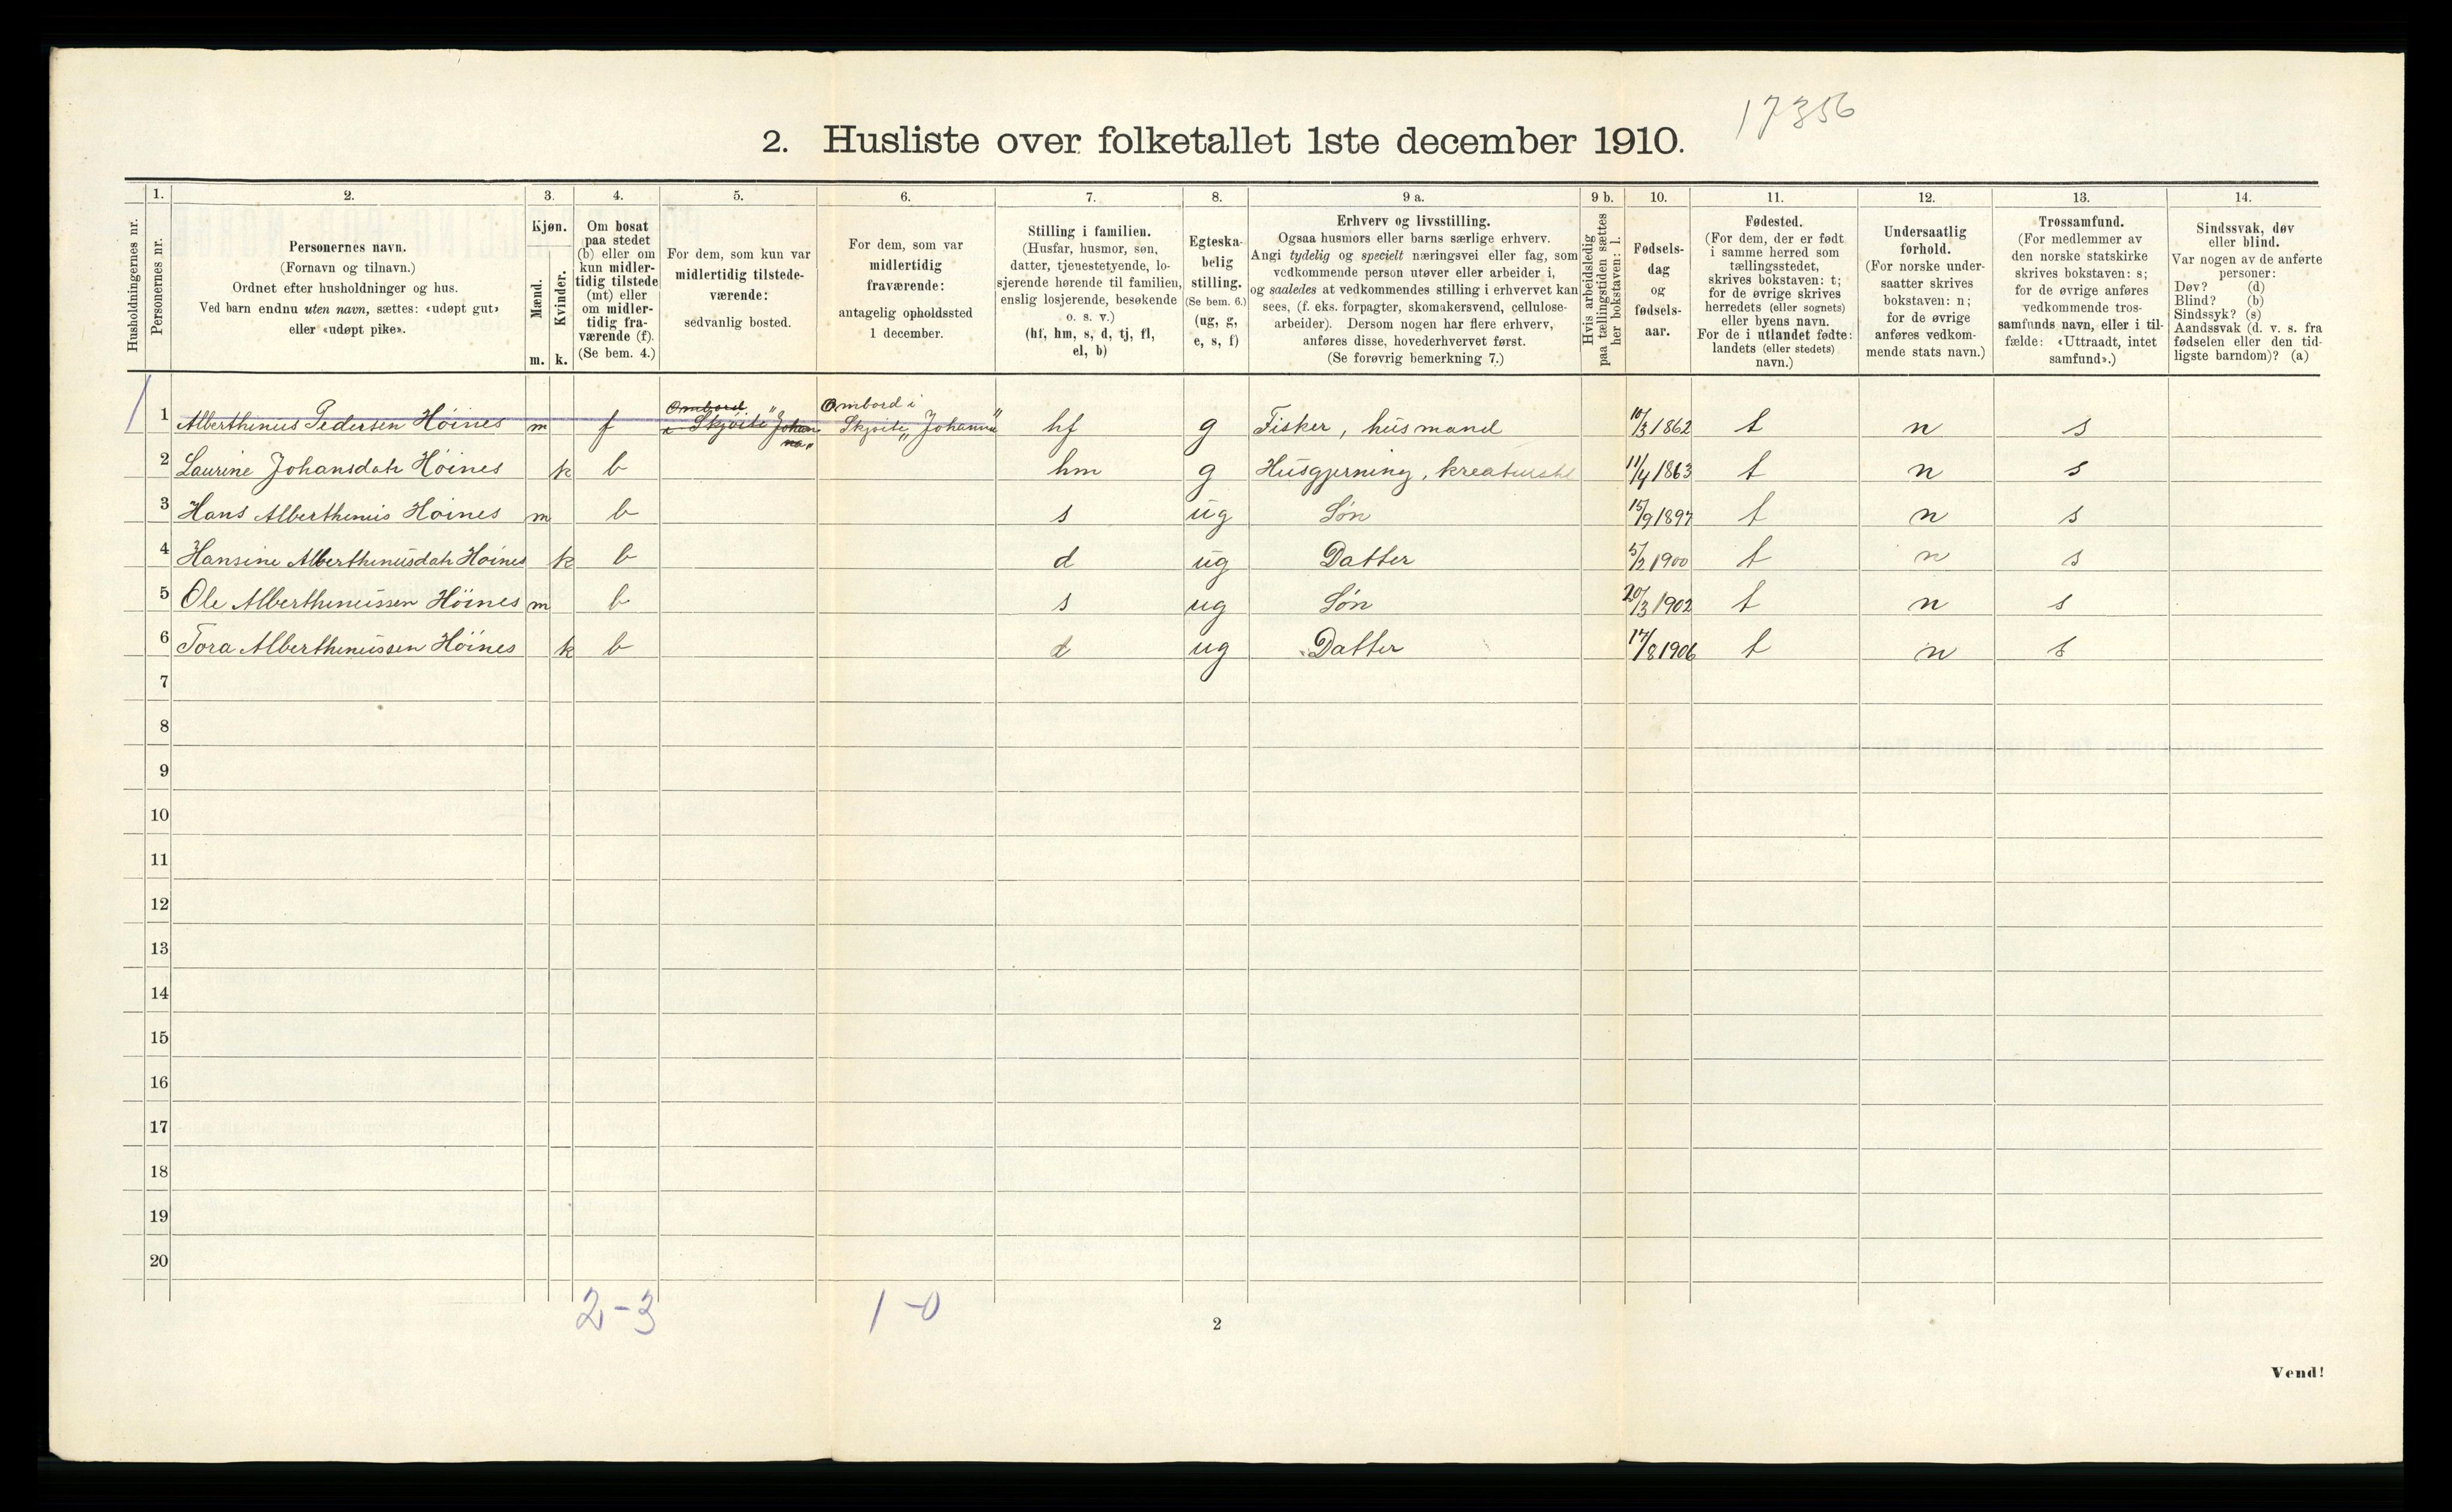 17356
2. Husliste over folketallet 1ste december 1910.
Husholdningernes nr.
1. Personernes nr.
2. Personernes navn.
(Fornavn og tilnavn.)
Ordnet efter husholdninger og hus.
Ved barn endnu uten navn, sættes: «udøpt gut»
eller «udøpt pike».
3. Kjøn.
Mænd. m.
Kvinder. k.
4. Om bosat
paa stedet
(b) eller om
kun midler-
tidig tilstede
(mt) eller
om midler-
tidig fra-
værende (f).
(Se bem. 4.)
5. For dem, som kun var
midlertidig tilstede-
værende:
sedvanlig bosted.
6. For dem, som var
midlertidig
fraværende:
antagelig opholdssted
1 december.
7. Stilling i familien.
(Husfar, husmor, søn,
datter, tjenestetyende, lo-
sjerende hørende til familien,
enslig losjerende, besøkende
o. s. v.)
(hf, hm, s, d, tj, fl,
el, b)
8. Egteska-
belig
stilling.
(Se bem. 6.)
(ug, g,
e, s, f)
9 a. Erhverv og livsstilling.
Ogsaa husmors eller barns særlige erhverv.
Angi tydelig og specielt næringsvei eller fag, som
vedkommende person utøver eller arbeider i,
og saaledes at vedkommendes stilling i erhvervet kan
sees, (f. eks. forpagter, skomakersvend, cellulose-
arbeider). Dersom nogen har flere erhverv,
anføres disse, hovederhvervet først.
(Se forøvrig bemerkning 7.)
9 b. Hvis arbeidsledig
paa tællingstiden sættes
her bokstaven: l.
10. Fødsels-
dag
og
fødsels-
aar.
11. Fødested.
(For dem, der er født
i samme herred som
tællingsstedet,
skrives bokstaven: t;
for de øvrige skrives
herredets (eller sognets)
eller byens navn.
For de i utlandet fødte:
landets (eller stedets)
navn.)
12. Undersaatlig
forhold.
(For norske under-
saatter skrives
bokstaven: n;
for de øvrige
anføres vedkom-
mende stats navn.)
13. Trossamfund.
(For medlemmer av
den norske statskirke
skrives bokstaven: s;
for de øvrige anføres
vedkommende tros-
samfunds navn, eller i til-
fælde: «Uttraadt, intet
samfund».)
14. Sindssvak, døv
eller blind.
Var nogen av de anførte
personer:
Døv? (d)
Blind? (b)
Sindssyk? (s)
Aandssvak (d. v. s. fra
fødselen eller den tid-
ligste barndom)? (a)
1 Alberthinus Pedersen Höines m f Ombord i Skjöite "Johanna" Ombord i Skjöite "Johanna" hf g Fisker, husmand 10/3 1862 t n s
2 Laurine Johansdatr Höines k b hm g Husgjerning, kreaturstel 11/4 1863 t n s
3 Hans Alberthinus Höines m b s ug Sön 15/9 1897 t n s
4 Hansine Alberthinusdatr Höines k b d ug Datter 5/2 1900 t n s
5 Ole Alberthinussen Höines m b s ug Sön 20/3 1902 t n s
6 Tora Alberthinussen Höines k b d ug Datter 17/8 1906 t n s
7
8
9
10
11
12
13
14
15
16
17
18
19
20
2-3 1-0
2
Vend!